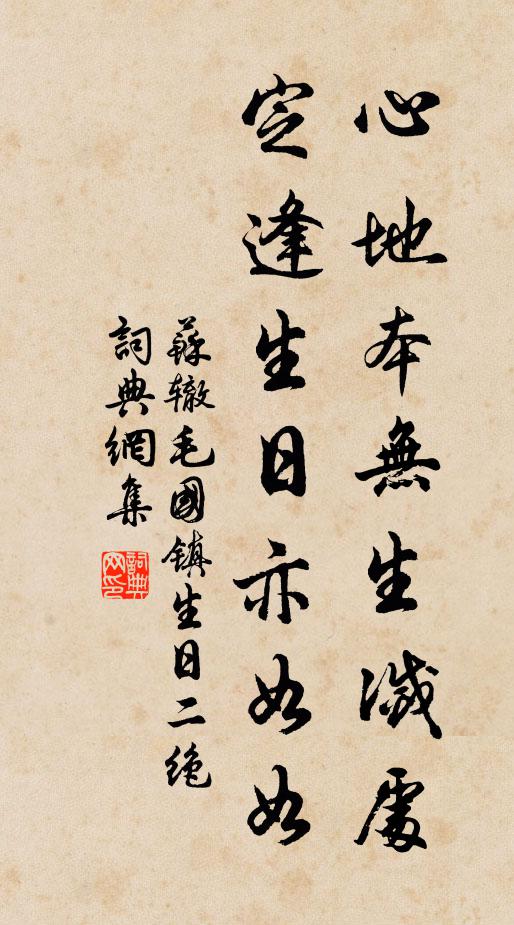 心地本無生滅處
定逢生日亦如如
蘇辙毛國鎮生日二絶
詞典網集
詞典
网印